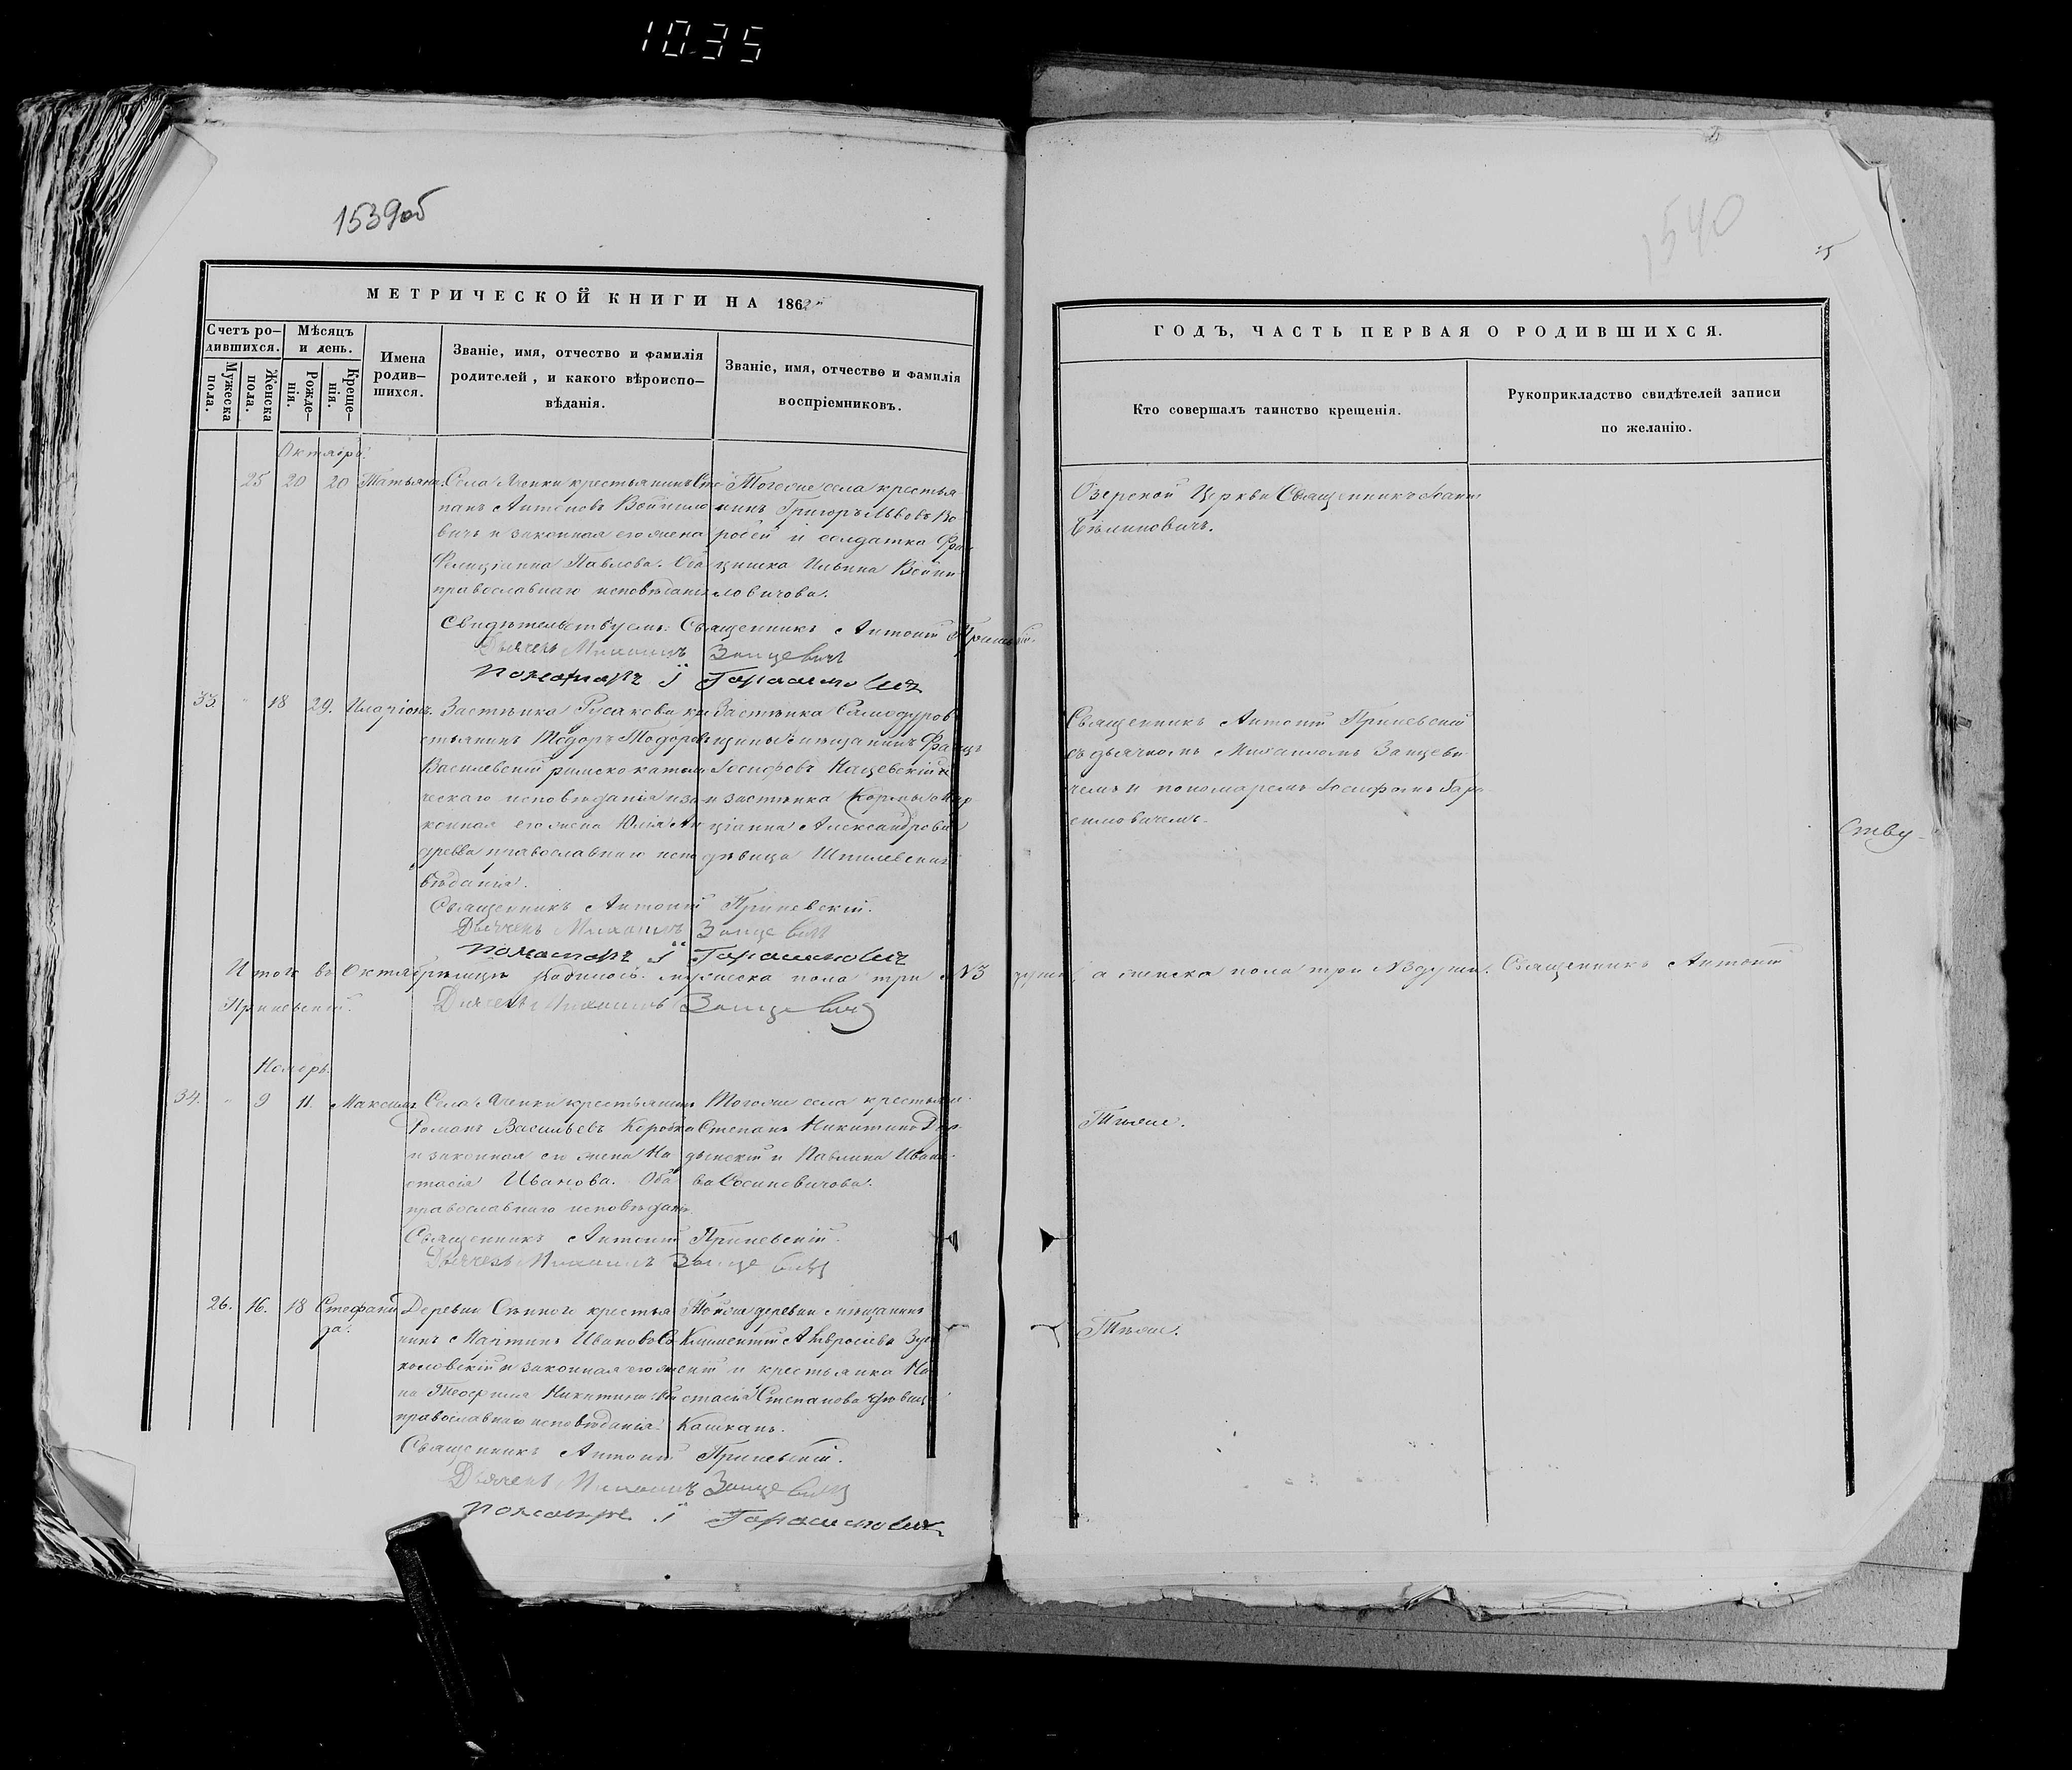 1035
1539об
1540
МЕТРИЧЕСКОЙ КНИГИ НА 1862
ГОДЪ, ЧАСТЬ ПЕРВАЯ О РОДИВШИХСЯ.
Счетъ ро-
дившихся.
Мужеска
пола.
Женска
пола.
Мѣсяцъ
и день.
Рожде-
нія.
Креще-
нія.
Имена
родив-
шихся.
Званіе, имя, отчество и фамилія
родителей, и какого вѣроиспо-
вѣданія.
Званіе, имя, отчество и фамилія
воспріемниковъ.
Кто совершалъ таинство крещенія.
Рукоприкладство свидѣтелей записи
по желанію.
Октябрь.
25 20 20 Татьяна.
Села крестьянинъ Сте
панъ Антоновъ Войнило
вичъ и законная его жена
Павлова. Оба
православнаго исповѣданія
Тогоже села крестья
нинъ Григоръ Львовъ Во
робей и солдатка Фра
цишка Ильина Войни
ловичова.
Озерской Церкви Священникъ Іоаннъ
Свидѣтельствуемъ: Священникъ Антоній
Дьячекъ Михаилъ Заицевичъ
Пономарь І Гарасимовичъ
33. " 18 29. Иларіонъ.
Застѣнка Русакови кре
стьянинъ Тодоръ Тодоровъ
Василевскій римско католи
ческаго исповѣданія и за
конная его жена Юлія Ан
дреева православнаго испо
вѣданія.
Застѣнка Самодуров
щины мѣщанинъ Францъ
Іосифовъ Кацевскій
и застѣнка
Александрова
дѣвица
Священникъ Антоній Приневскій
съ дьячкомъ Михаиломъ Заицеви
чемъ и пономаремъ Іосифомъ Гара
симовичемъ.
ству-
Священникъ Антоній Приневскій.
Дьячекъ Михаилъ Заицевичъ
Пономарь І Гарасимовичъ
Итого въ Октябрѣ мѣсяцѣ родилось: мужеска пола три №3 души, а женска пола три №3 души. Священникъ Антоній
Приневскій. Дьячекъ Михаилъ Заицевичъ
Ноябрь.
34. " 9 11. Максимъ
Села крестьянинъ
Романъ Васильевъ
и законная его жена На
стасія Иванова. Оба
православнаго исповѣданія
Тогоже села крестьян.
Степанъ Никитинъ
и Павлина Ивано-
ва
Тѣже.
Священникъ Антоній Приневскій.
Дьячекъ Михаилъ Заицевичъ
26. 16. 18 Стефани
да.
Деревни Сѣнного крестья
нинъ Мартинъ Ивановъ Со
коловскій и законная его же
на Теофила Никитина. Оба
православнаго исповѣданія.
Тойже деревни мѣщанинъ
Климентій Амвросіевъ
и крестьянка На
стасія Степанова дѣвица
Кашканъ.
Тѣже.
Священникъ Антоній Приневскій.
Дьячекъ Михаилъ Заицевичъ
Пономарь І Гарасимовичъ